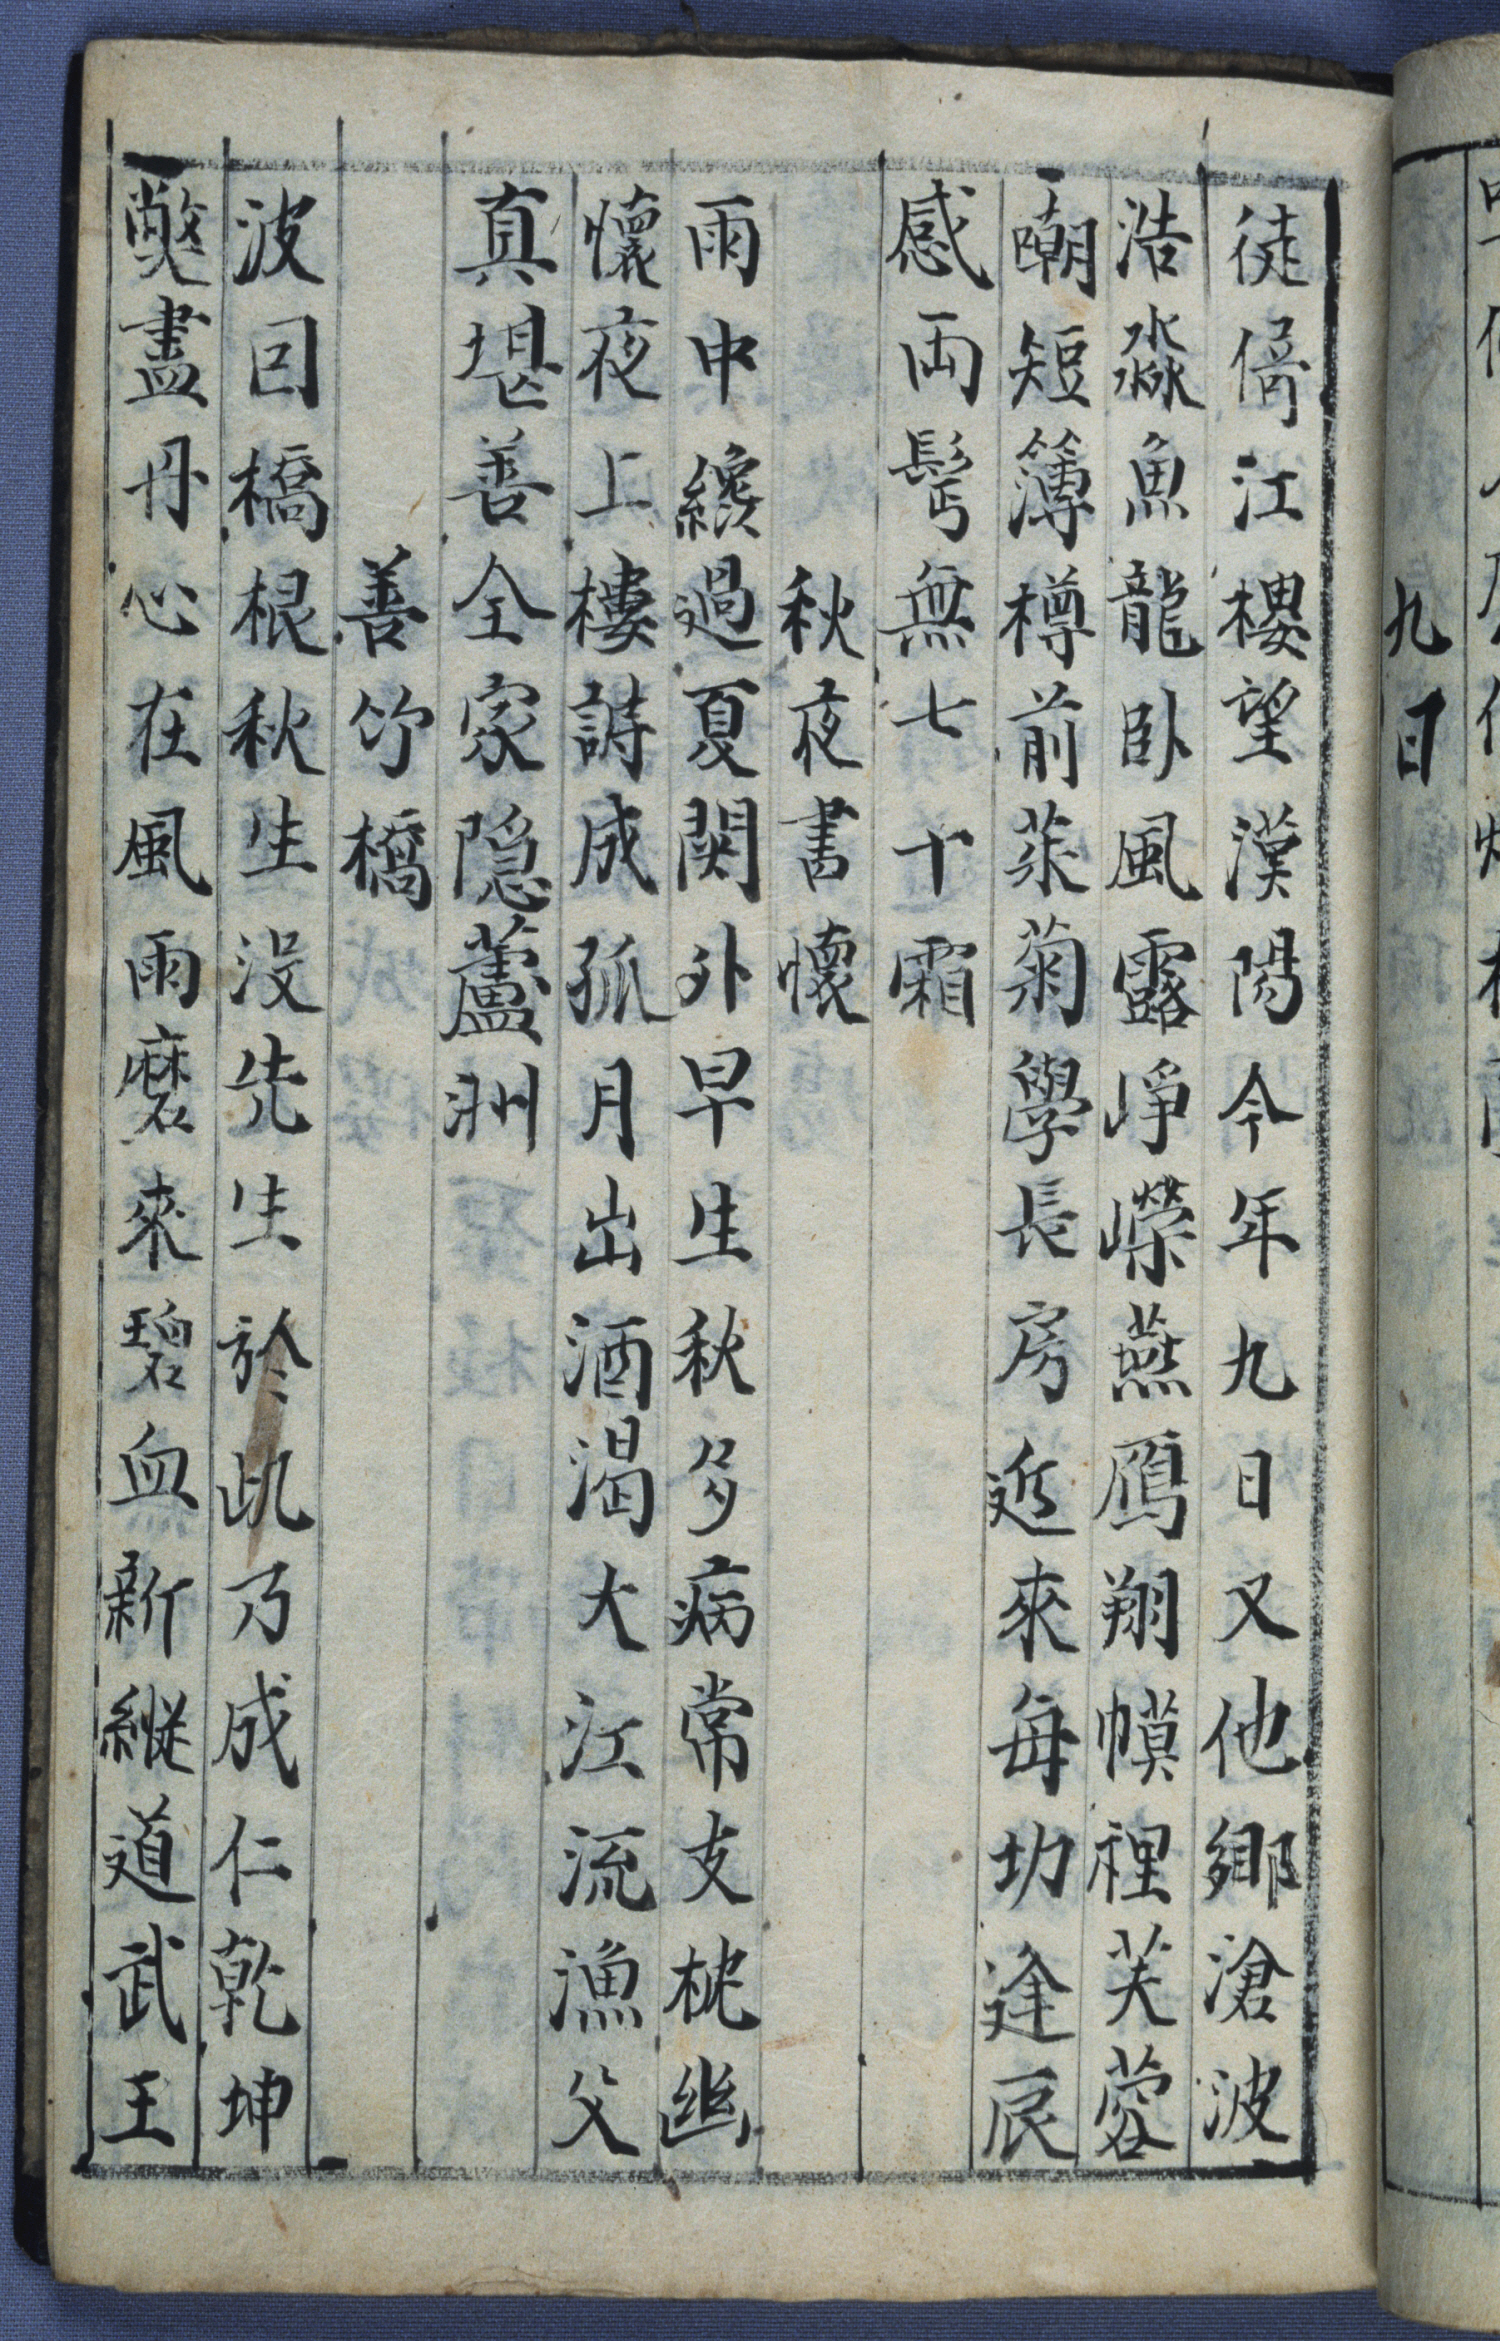 九日
徒倚江樓望漢陽今年九日又他鄉滄波
浩淼魚龍卧風露崢嶸燕鴈翔幙裡芙蓉
嘲短簿樽前茱菊學長房近來每切逢辰
感両鬂無七十霜
秋夜書懷
雨中纔過夏関外早生秋多病常支枕幽
懷夜上樓詩成孤月出酒渴大江流漁父
真堪善全家隠蘆洲
善竹橋
波囙橋根秋生没先生於此乃成仁乾坤
獘盡丹心在風雨磨來碧血新縦道武王